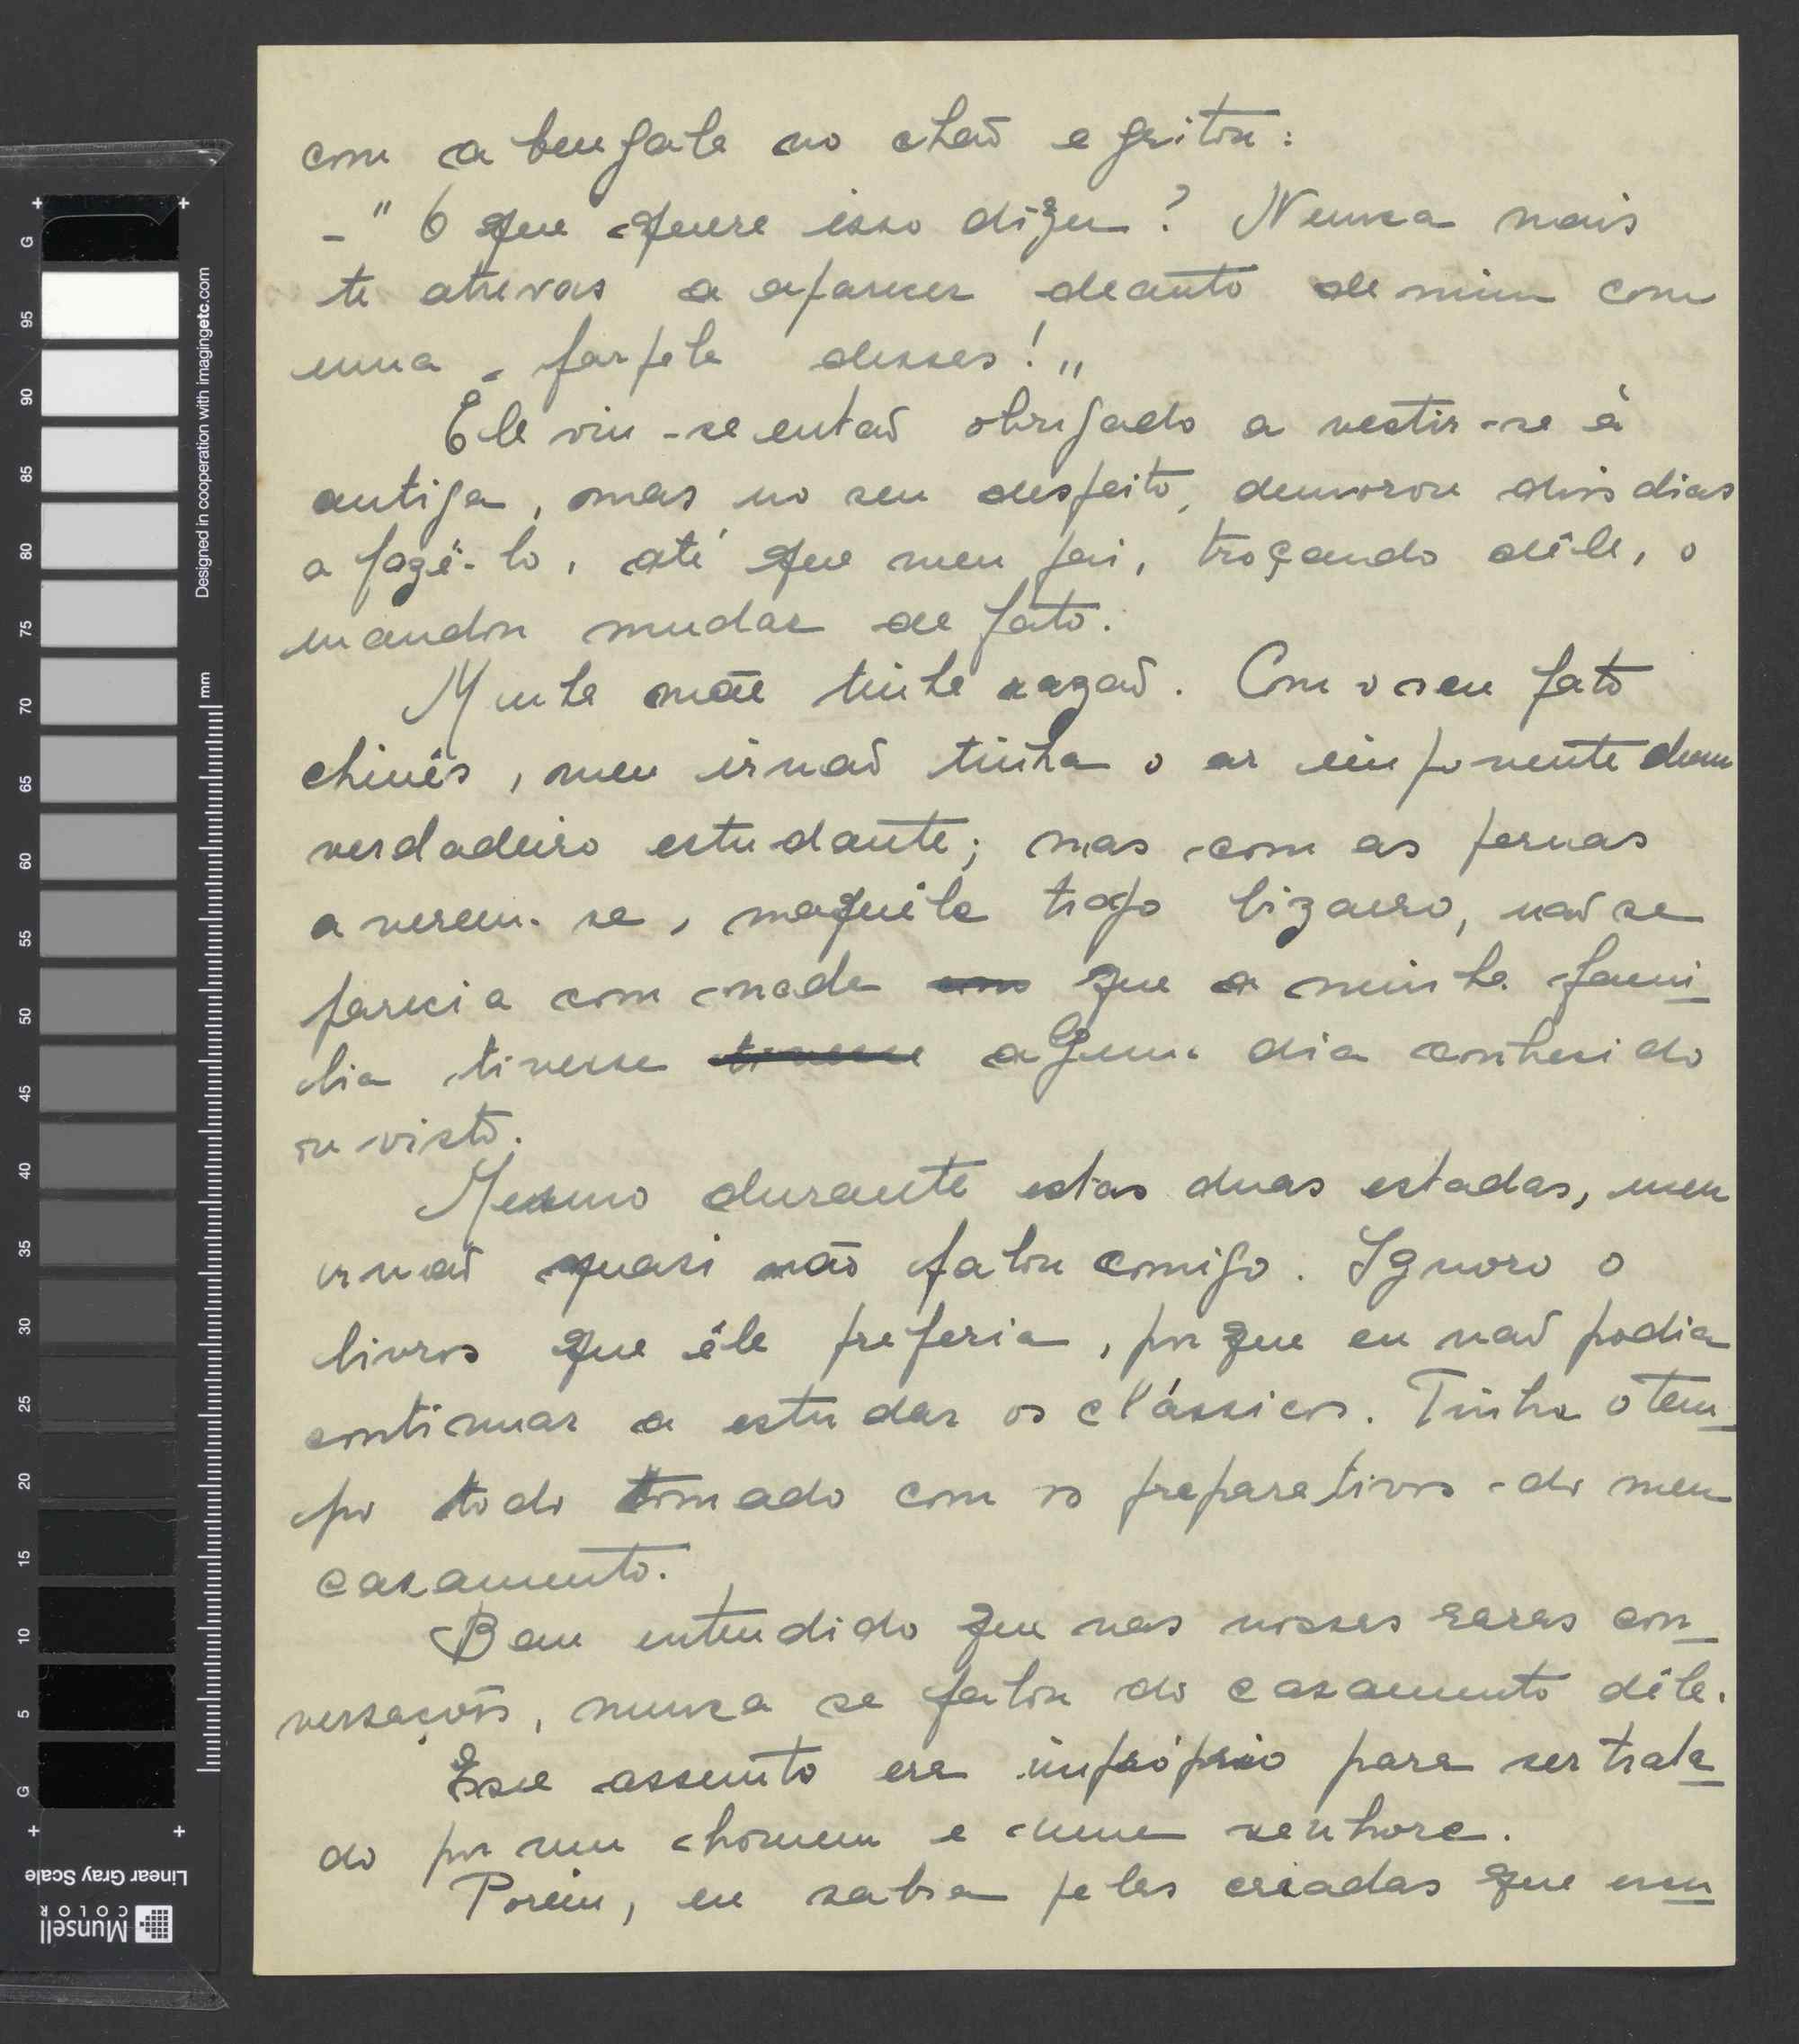 com a bengala no chaõ e gritou:
– " O que quere isso dizer? Nunca mais
te atrevas a aparecer deante de mim com
uma farpela desses! "
Ele viu-se entaõ obrigado a vestir-se á
antiga, mas no seu despeito, demorou dois dias
a fazê-lo, até que meu pai, troçando dêle, o
mandou mudar de fato.
Minha mãe tinha razaõ. Com o seu fato
chinês, meu irmaõ tinha o ar imponente dum
verdadeiro estudante; mas com as pernas
a verem-se, naquêle trajo bizarro, naõ se
parecia com nada que a minha fami-
lia tivesse algum dia conhecido
ou visto.
Mesmo durante estas duas estadas, meu
irmaõ quasi não falou comigo. Ignoro o
livros que êle preferia, porque eu naõ podia
continuar a estudar os clássicos. Tinha o tem-
po todo tomado com os preparativos do meu
casamento.
Bem entendido que nas nossas raras con-
versações, nunca se falou do casamento dêle.
Esse assunto era impróprio para ser trata-
do por um homem e uma senhora.
Porém, eu sabia pelas criadas que meu
G
95
90
85
80
75
70
65
60
55
50
45
40
35
30
25
20
15
10
5
G
mm
Designed in cooperation with imagingetc.com
Linear Gray Scale
Munsell
COLOR